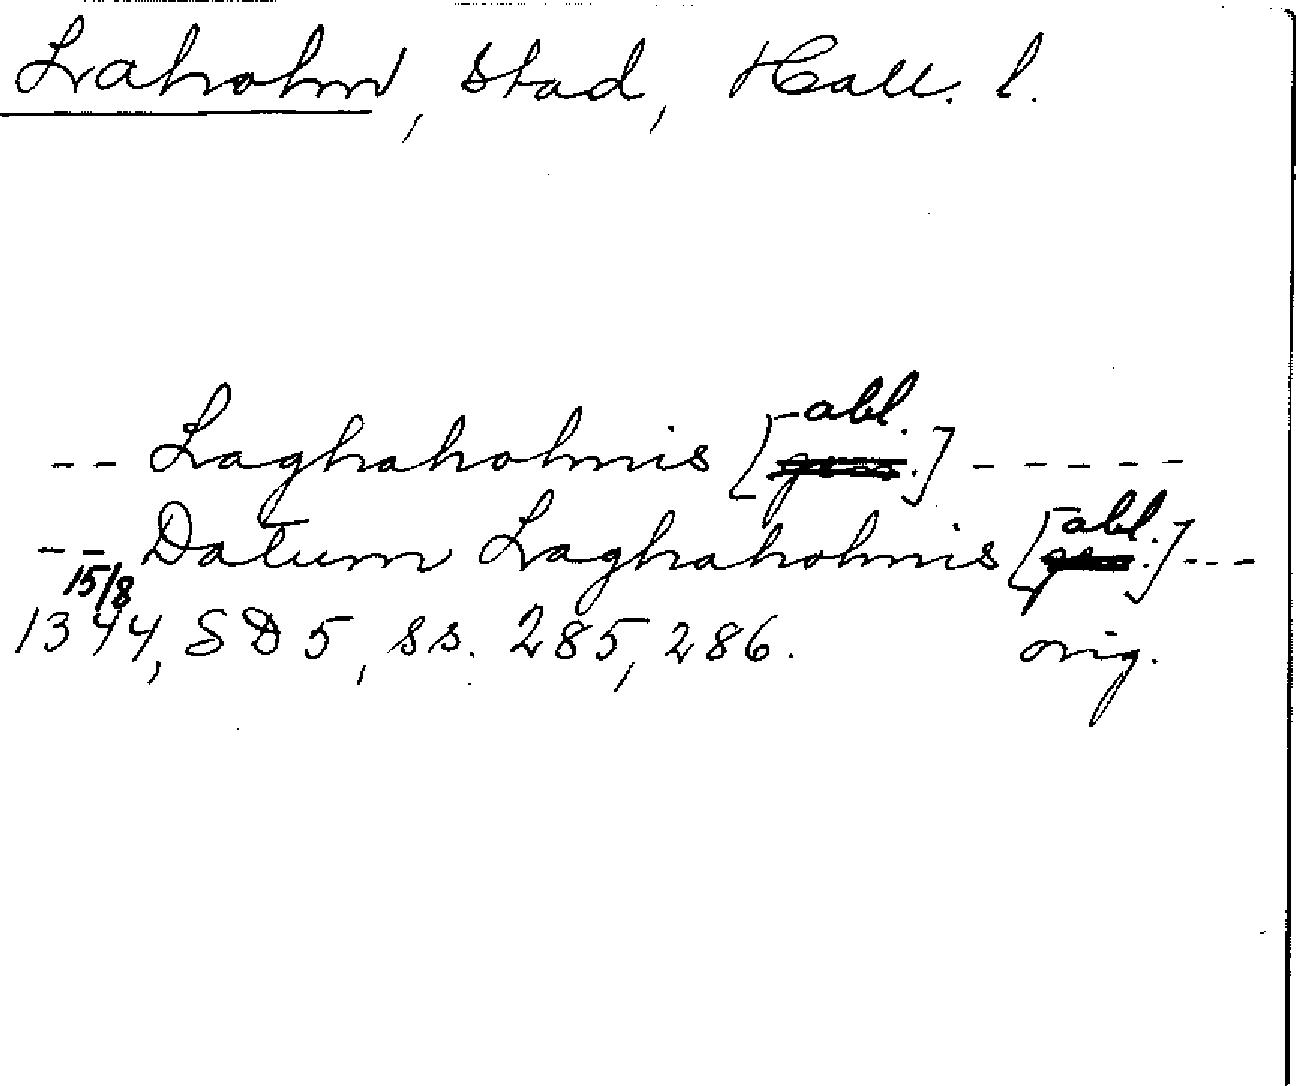 Laholm, stad, Hall. l.
-- Laghaholmis [abl.] -----
-- Datum Laghaholmis [abl.] ---
15/8 1344, SD 5, ss. 285, 286. orig.